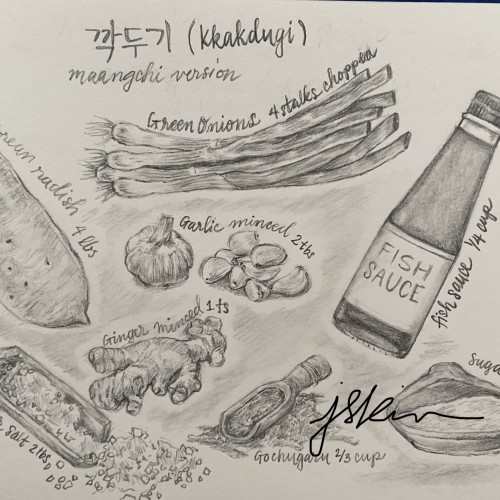 깍두기 (Kkakdugi)
maangchi version
Green Onions 4 stalks chopped
radish 4 lbs
Garlic minced 2 tbs
FISH
SAUCE
fish sauce 1/4 cup
Ginger minced 1 ts
salt 2 tbs
Gochugaru 2/3 cup
jskim